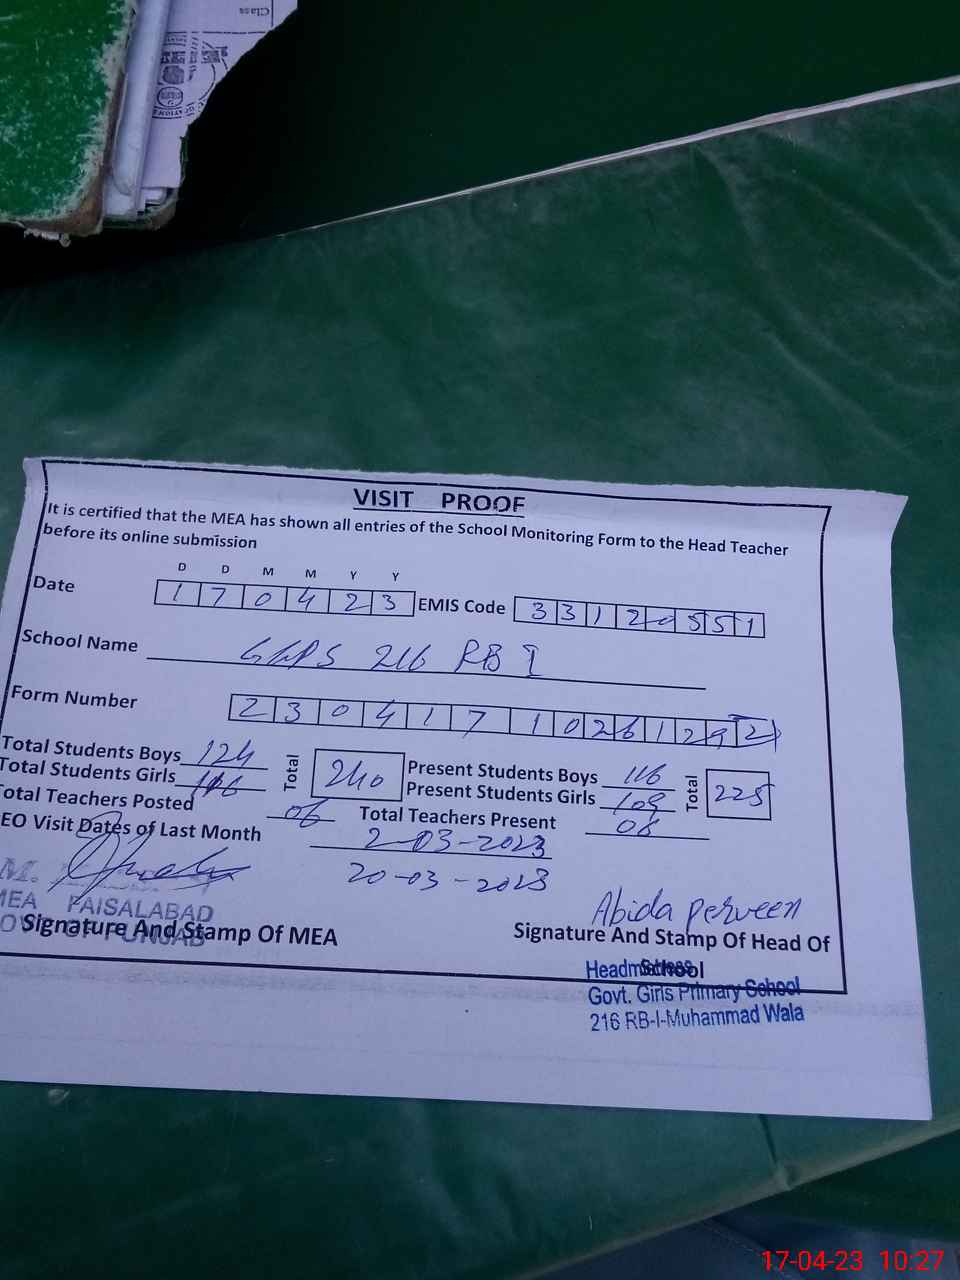 Class
VISIT PROOF
It is certified that the MEA has shown all entries of the School Monitoring Form to the Head Teacher
before its online submission
D D M M Y Y
Date 1 7 0 4 2 3 EMIS Code 3 3 1 2 0 5 5 1
School Name GGPS 216 RB I
Form Number 2 3 0 4 1 7 1 0 2 6 1 2 9 2
Total Students Boys 124 Total 240 Present Students Boys 116 Total 225
Total Students Girls 116 Present Students Girls 109
Total Teachers Posted 06 Total Teachers Present 06
EO Visit Dates of Last Month 2-03-2023
20-03-2023
M.
MEA FAISALABAD
GOVT OF PUNJAB
Signature And Stamp Of MEA
Abida Perveen
Signature And Stamp Of Head Of
School
Headmistress
Govt. Girls Primary School
216 RB-I-Muhammad Wala
17-04-23 10:27